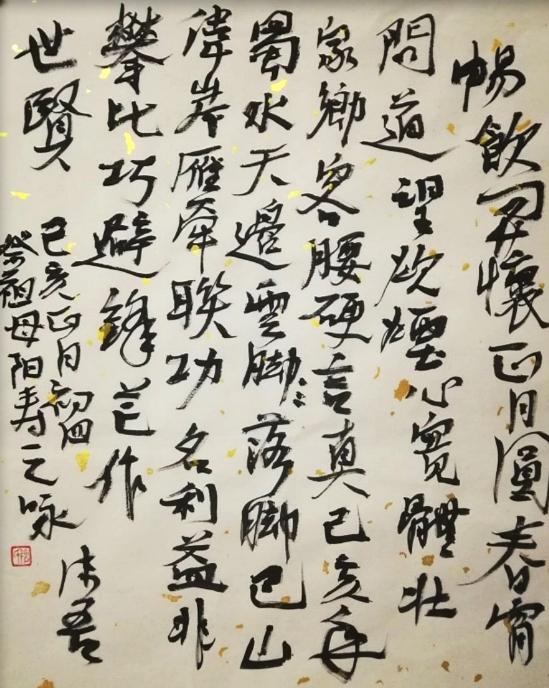 暢飲開懷正月圓春宵
問道望炊煙心寬體壯
家鄉客腰硬言真己亥年
蜀水天邊雲脚落脚巴山
偉岸雁牽聯功名利益非
攀比巧避鋒芒作
世賢
己亥正月初四
祭祖母阳寿之咏